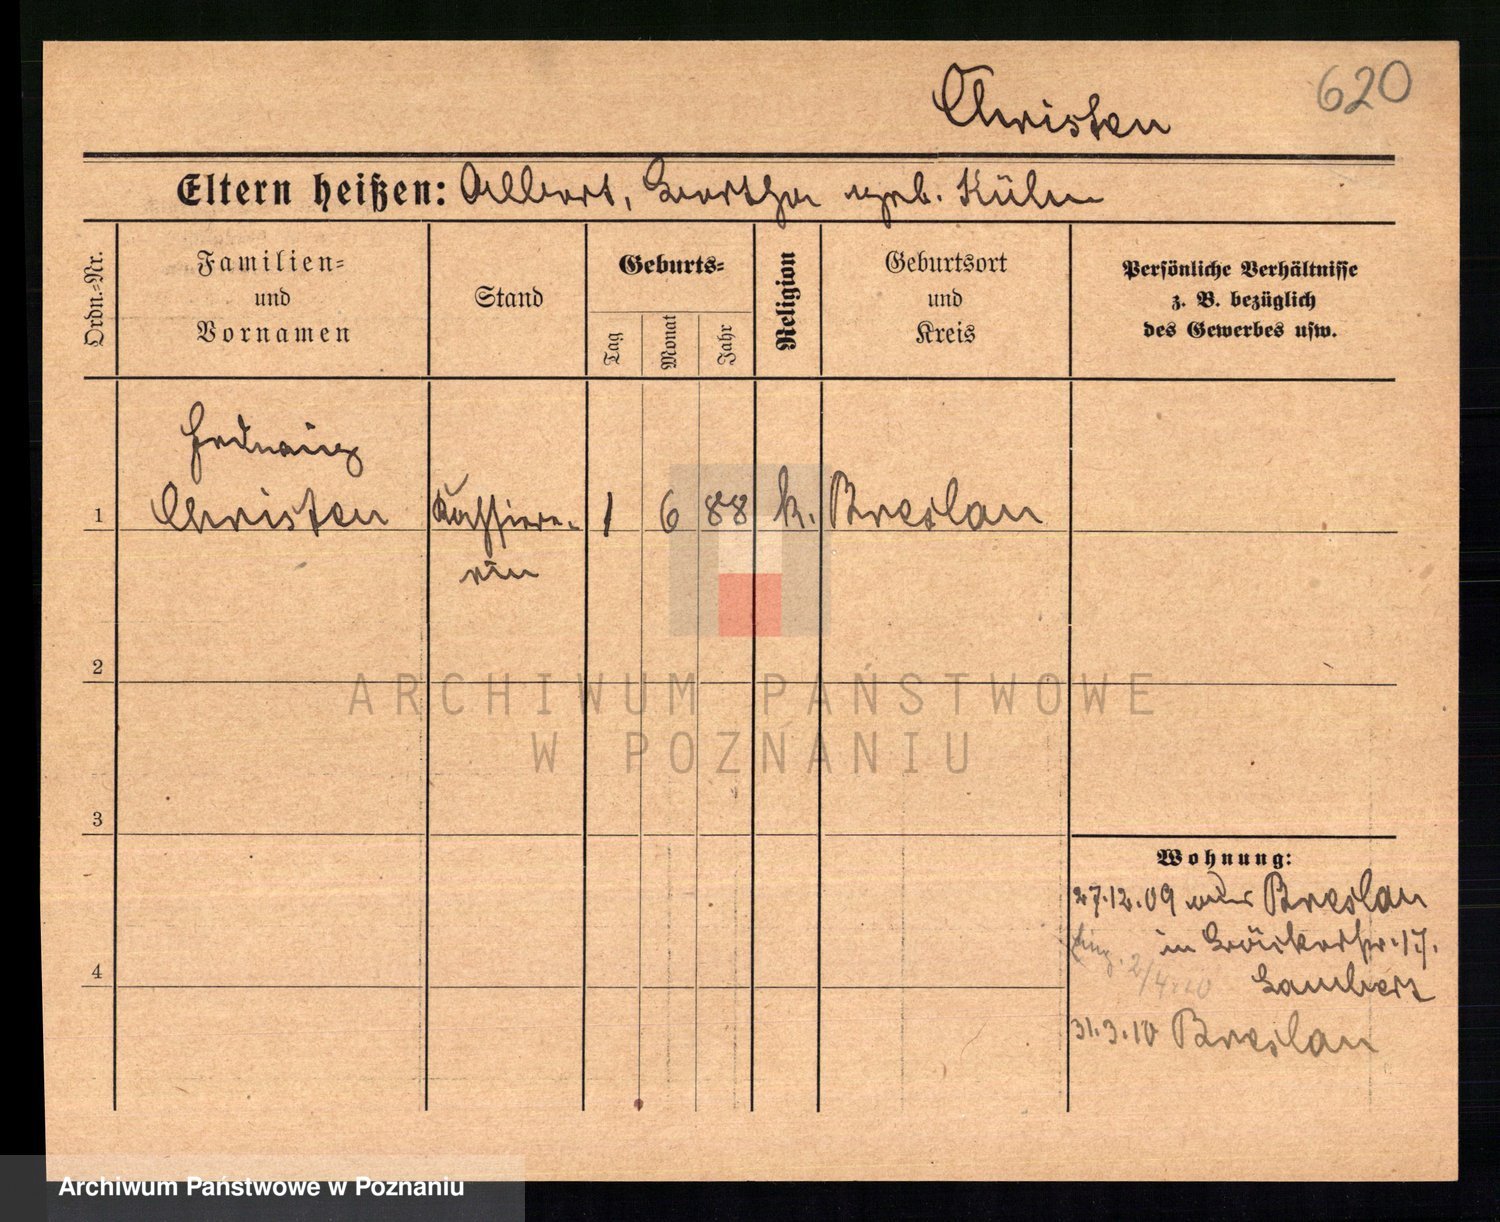 620
Christen
Eltern heißen: Albert, Bertha geb. Kühn
Ordn.=Nr.
Familien=
und
Vornamen
Stand
Geburts=
Tag
Monat
Jahr
Religion
Geburtsort
und
Kreis
Persönliche Verhältnisse
z. B. bezüglich
des Gewerbes usw.
Hedwig
1 Christen Kassiere- 1 6 88 k. Breslau
rin
2
ARCHIWUM PAŃSTWOWE
W POZNANIU
3
Wohnung:
27.12.09 aus Breslau
in Bäckerstr. 17.
4
2/4.10
Lambert
31.3.10 Breslau
Archiwum Państwowe w Poznaniu